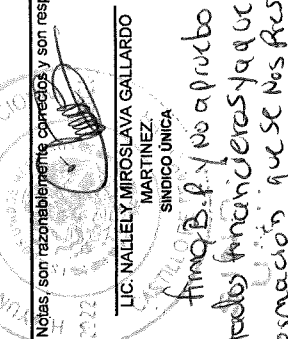 Notas, son razonablemente correctos y son resp
LIC. NALLELY MIROSLAVA GALLARDO
MARTINEZ.
SINDICO ÚNICA
firmo B.P. y no apruebo
tados financieros ya que
rmación que se nos Pres
2022